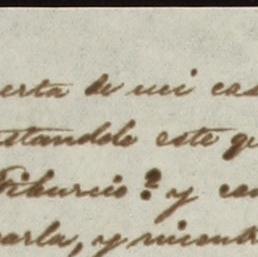 erta de mi cas
standole este q
Tiburcio? y co
arla, y mient